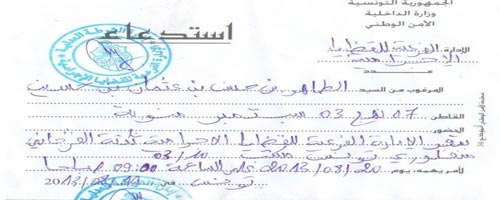 الجمهورية التونسية
وزارة الداخلية
الأمن الوطني
استدعاء
الإدارة: الفرعية للقضايا
الإجرامية
عدد
المرغوب من السيد الطاهر بن حسن بن عثمان بن حسين
القاطن 17 نهج 03 سبتمبر منوبة
الحضور
بمقر الإدارة الفرعية للقضايا الإجرامية ثكنة القرجاني
تونس مكتب 03/10
لأمر يهمه، يوم 2013/03/20 على الساعة 09:00 صباحا
تونس في